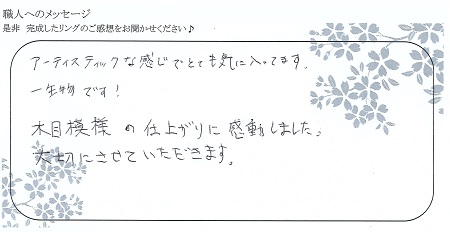 職人へのメッセージ
是非 完成したリングのご感想をお聞かせください♪
アーティスティックな感じでとても気に入ってます。
一生物です!
木目模様の仕上がりに感動しました。
大切にさせていただきます。